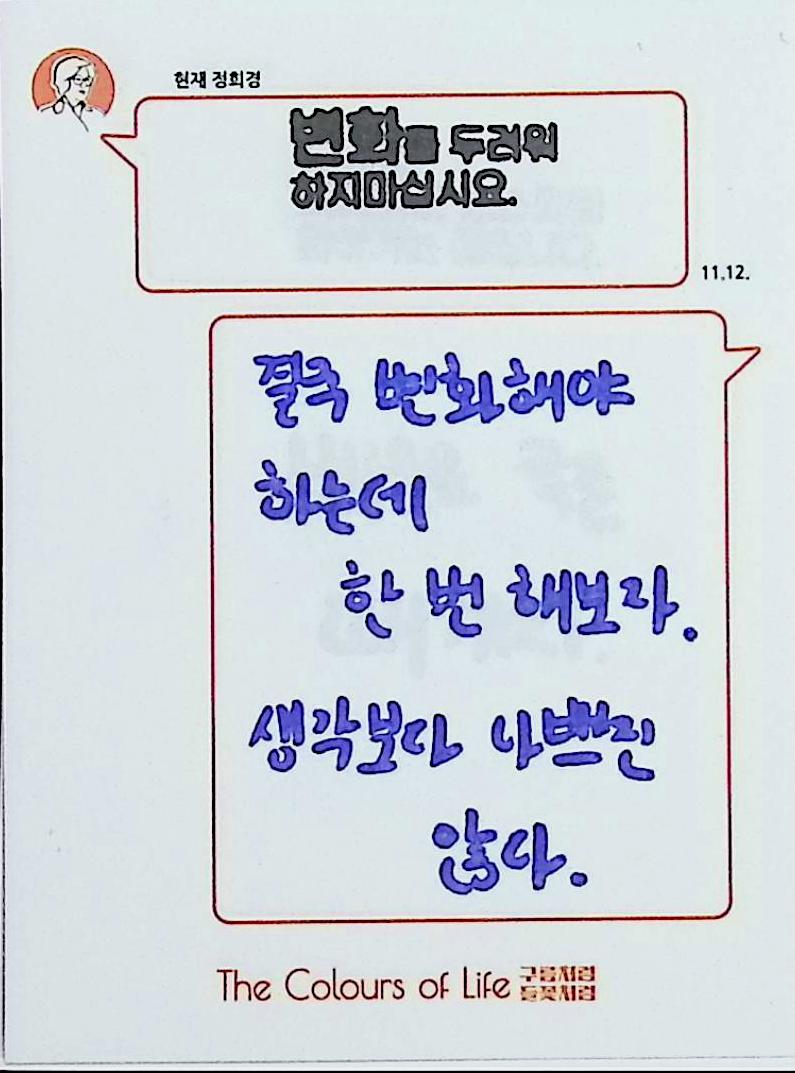 현재 정희경
변화를 두려워
하지마십시요.
11.12.
결국 변화해야
하는데
한 번 해보자.
생각보다 나쁘진
않다.
The Colours of Life 구름처럼
들꽃처럼